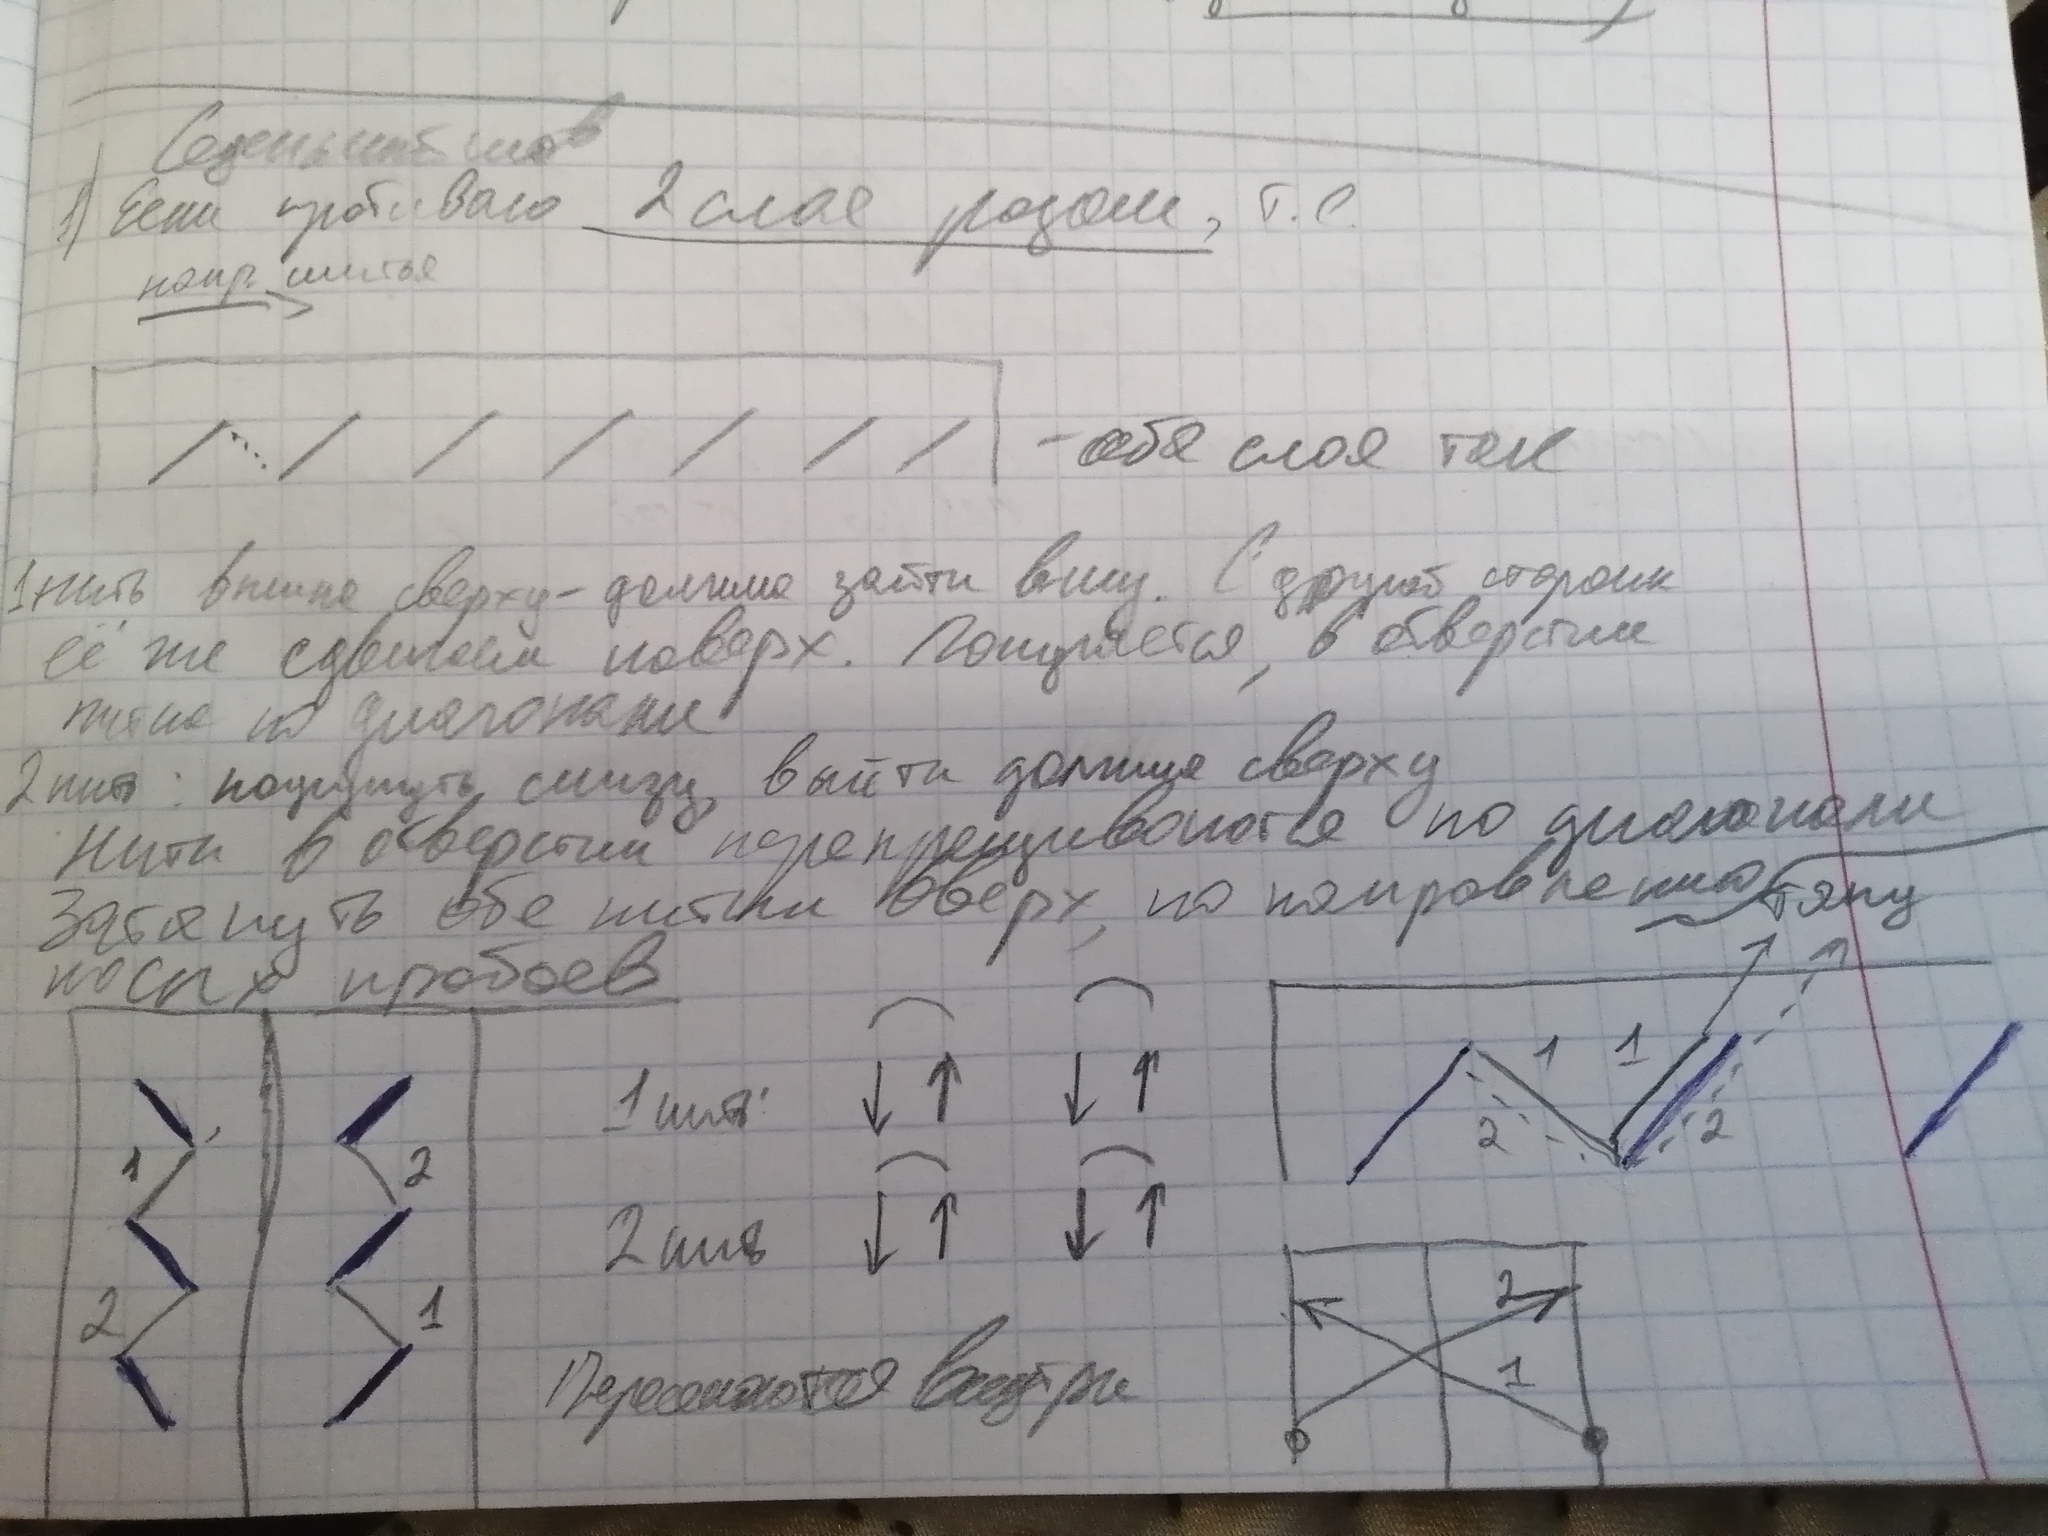 Седельный шов
1) Если пробиваю 2 слоя разом, т.е.
напр. шитья
- оба слоя так
1 нить вышла сверху - должна зайти вниз. С другой стороны
её же сдвигаем наверх. Получается, в отверстии
нитка по диагонали
2 нить: подцепить снизу, выйти должна сверху
Нити в отверстии перекрещиваются по диагонали
Затянуть обе нитки вверх, по направлению
тяну
пробоев
1 1
2 2
1 2
2 1
1 нить:
2 нить
2
1
Пересекаются внутри